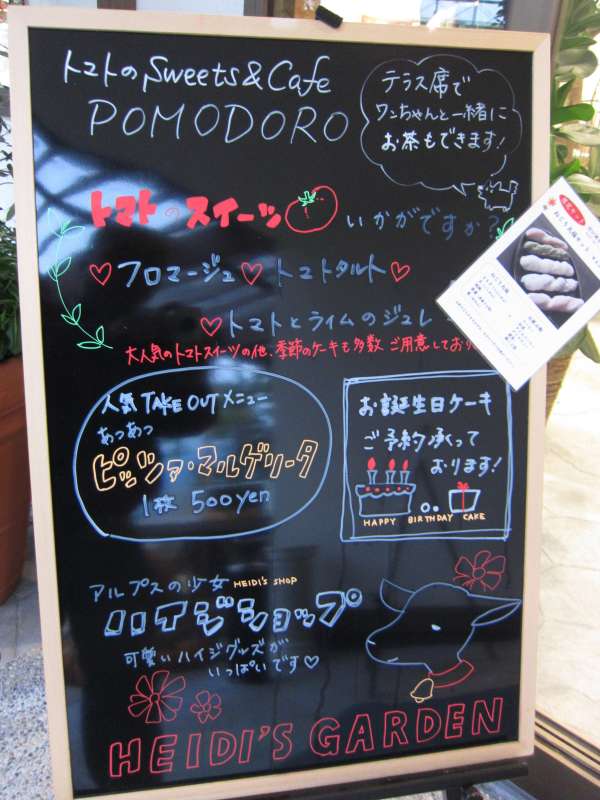 トマトのSweets&Cafe
POMODORO
テラス席で
ワンちゃんと一緒に
お茶もできます!
トマトのスイーツ いかがですか?
♡フロマージュ♡トマトタルト♡
♡トマトとライムのジュレ
大人気のトマトスイーツの他、季節のケーキも多数ご用意しており
人気TAKE OUTメニュー
あつあつ
ピッツァ・マルゲリータ
1枚 500yen
お誕生日ケーキ
ご予約承って
おります!
HAPPY BIRTHDAY CAKE
アルプスの少女 HEIDI'S SHOP
ハイジショップ
可愛いハイジグッズが
いっぱいです♡
HEIDI'S GARDEN